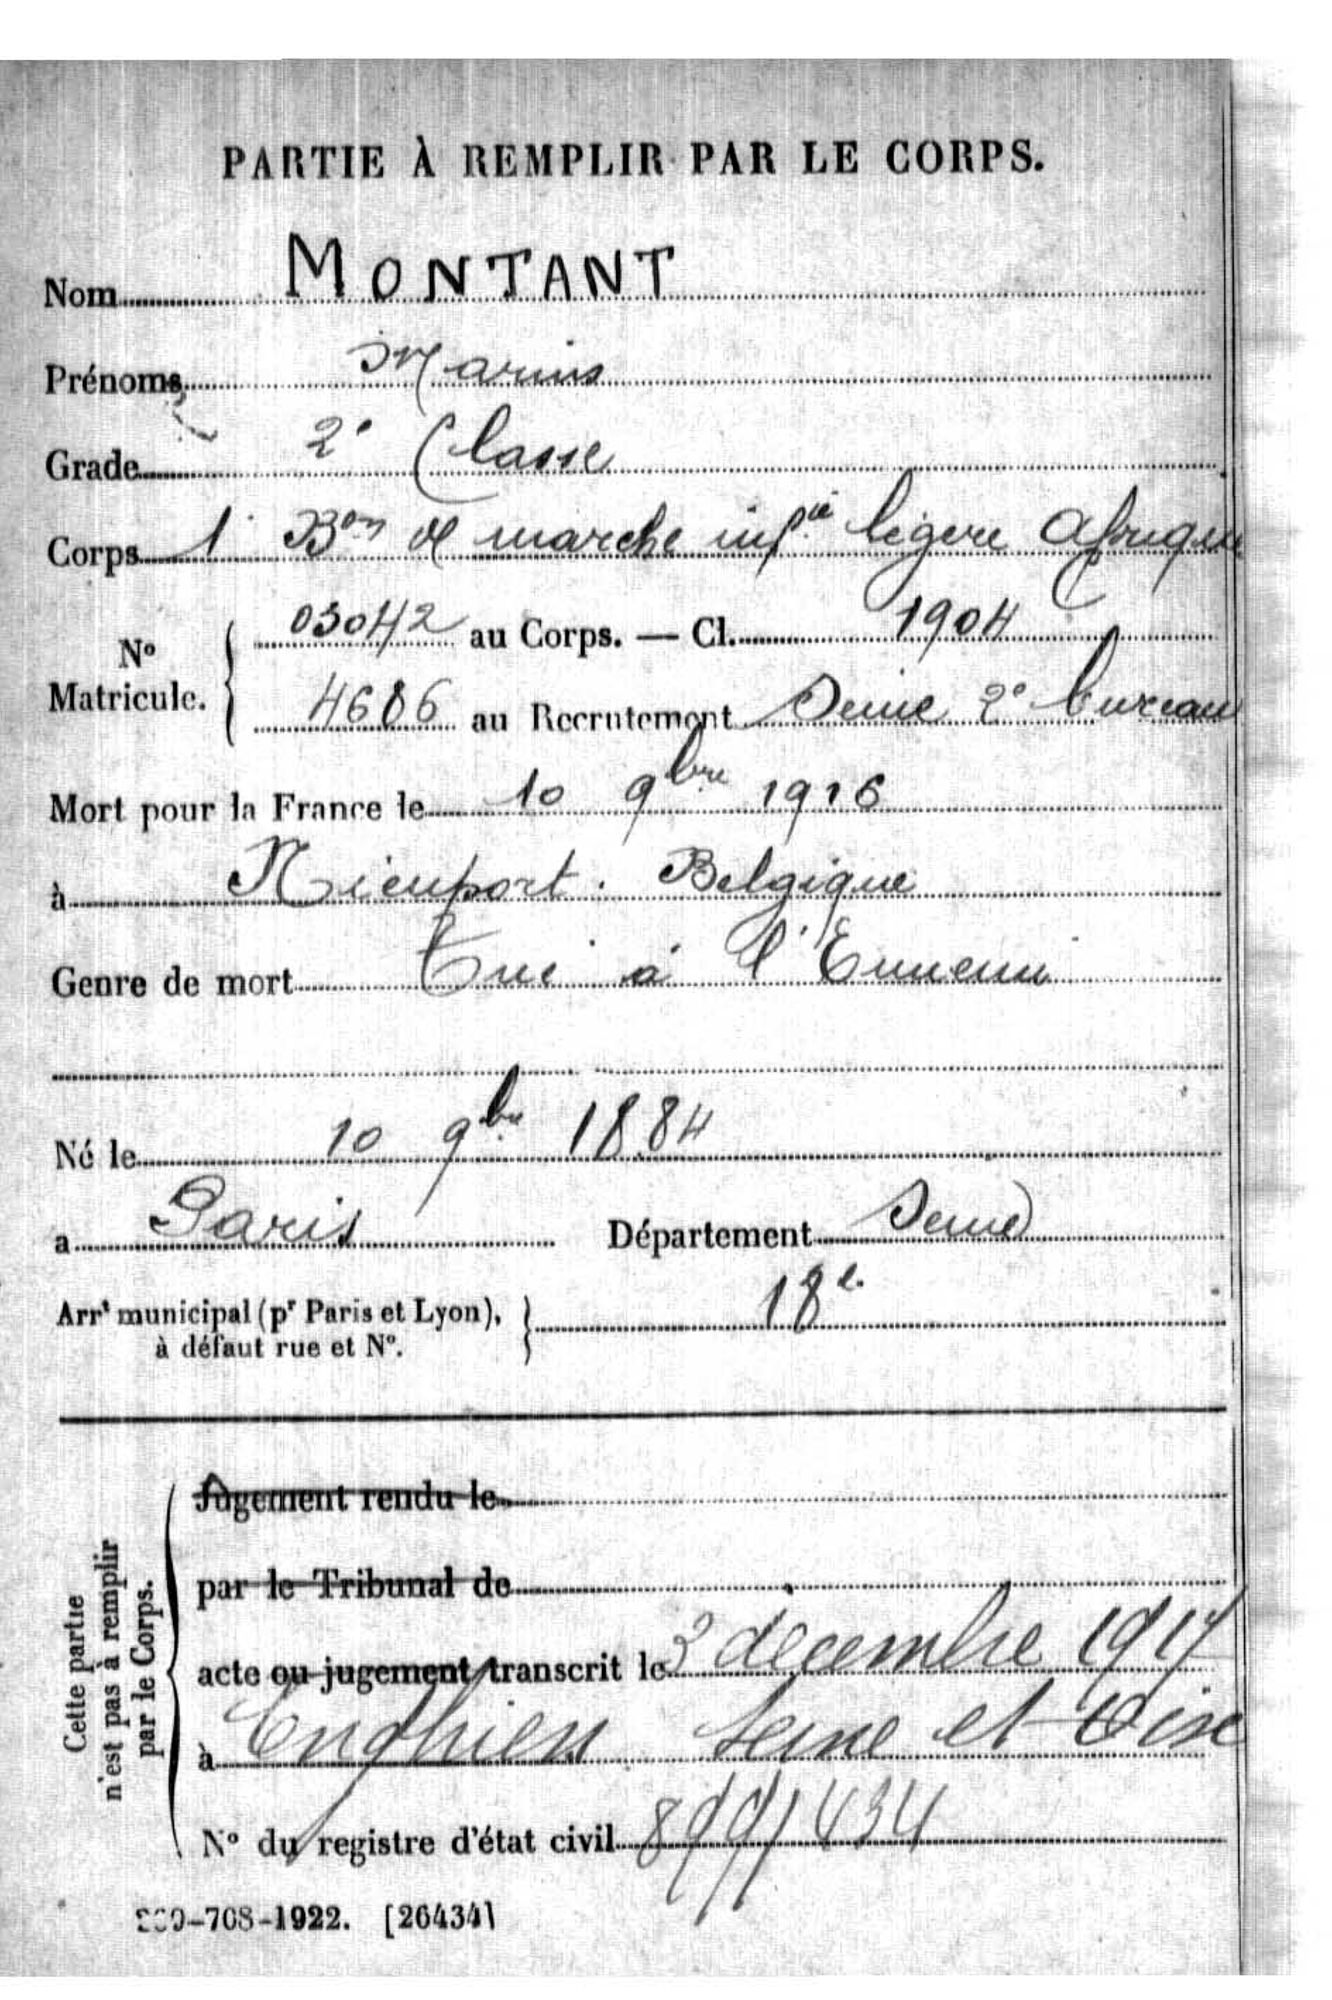 PARTIE À REMPLIR PAR LE CORPS.
Nom MONTANT
Prénoms Marius
Grade 2e Classe
Corps 1er Bon de marche infie légère Afrique
No Matricule. 03042 au Corps. — Cl. 1904
4686 au Recrutement Seine 2e bureau
Mort pour la France le 10 9bre 1916
à Nieuport. Belgique
Genre de mort Tué à l'Ennemi
Né le 10 9bre 1884
à Paris Département Seine
Arrt municipal (pr Paris et Lyon), à défaut rue et No. 18e
Cette partie n'est pas à remplir par le Corps.
Jugement rendu le
par le Tribunal de
acte ou jugement transcrit le 3 décembre 1917
à Enghien Seine et Oise
No du registre d'état civil
-708-1922. [26434]